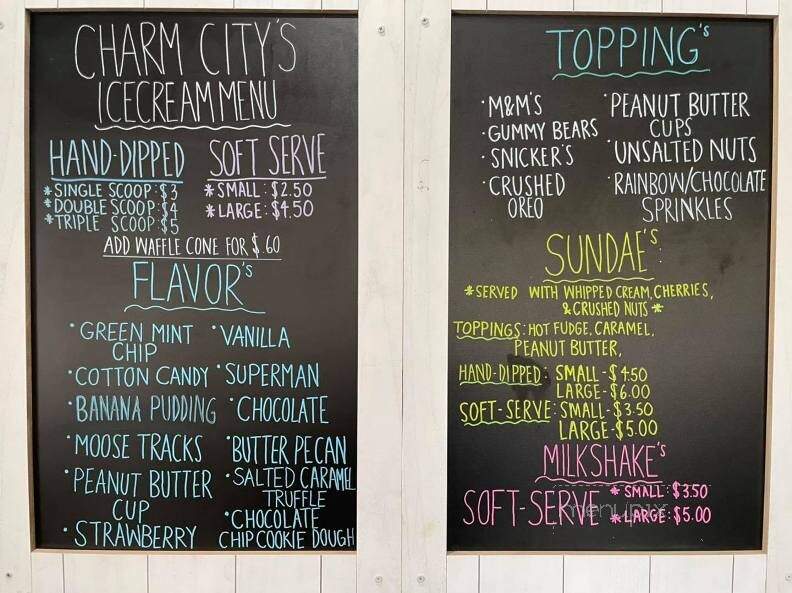 CHARM CITY'S
ICECREAM MENU
HAND-DIPPED
* SINGLE SCOOP: $3
* DOUBLE SCOOP: $4
* TRIPLE SCOOP: $5
SOFT SERVE
* SMALL: $2.50
* LARGE: $4.50
ADD WAFFLE CONE FOR $.60
FLAVOR'S
· GREEN MINT
CHIP
· COTTON CANDY
· BANANA PUDDING
· MOOSE TRACKS
· PEANUT BUTTER
CUP
· STRAWBERRY
· VANILLA
· SUPERMAN
· CHOCOLATE
· BUTTER PECAN
· SALTED CARAMEL
TRUFFLE
· CHOCOLATE
CHIP COOKIE DOUGH
TOPPING'S
· M&M'S
· GUMMY BEARS
· SNICKER'S
· CRUSHED
OREO
· PEANUT BUTTER
CUPS
· UNSALTED NUTS
· RAINBOW/CHOCOLATE
SPRINKLES
SUNDAE'S
* SERVED WITH WHIPPED CREAM, CHERRIES,
& CRUSHED NUTS *
TOPPINGS: HOT FUDGE, CARAMEL,
PEANUT BUTTER,
HAND-DIPPED: SMALL - $4.50
LARGE - $6.00
SOFT-SERVE: SMALL - $3.50
LARGE - $5.00
MILKSHAKE'S
SOFT-SERVE * SMALL: $3.50
* LARGE: $5.00
menupix